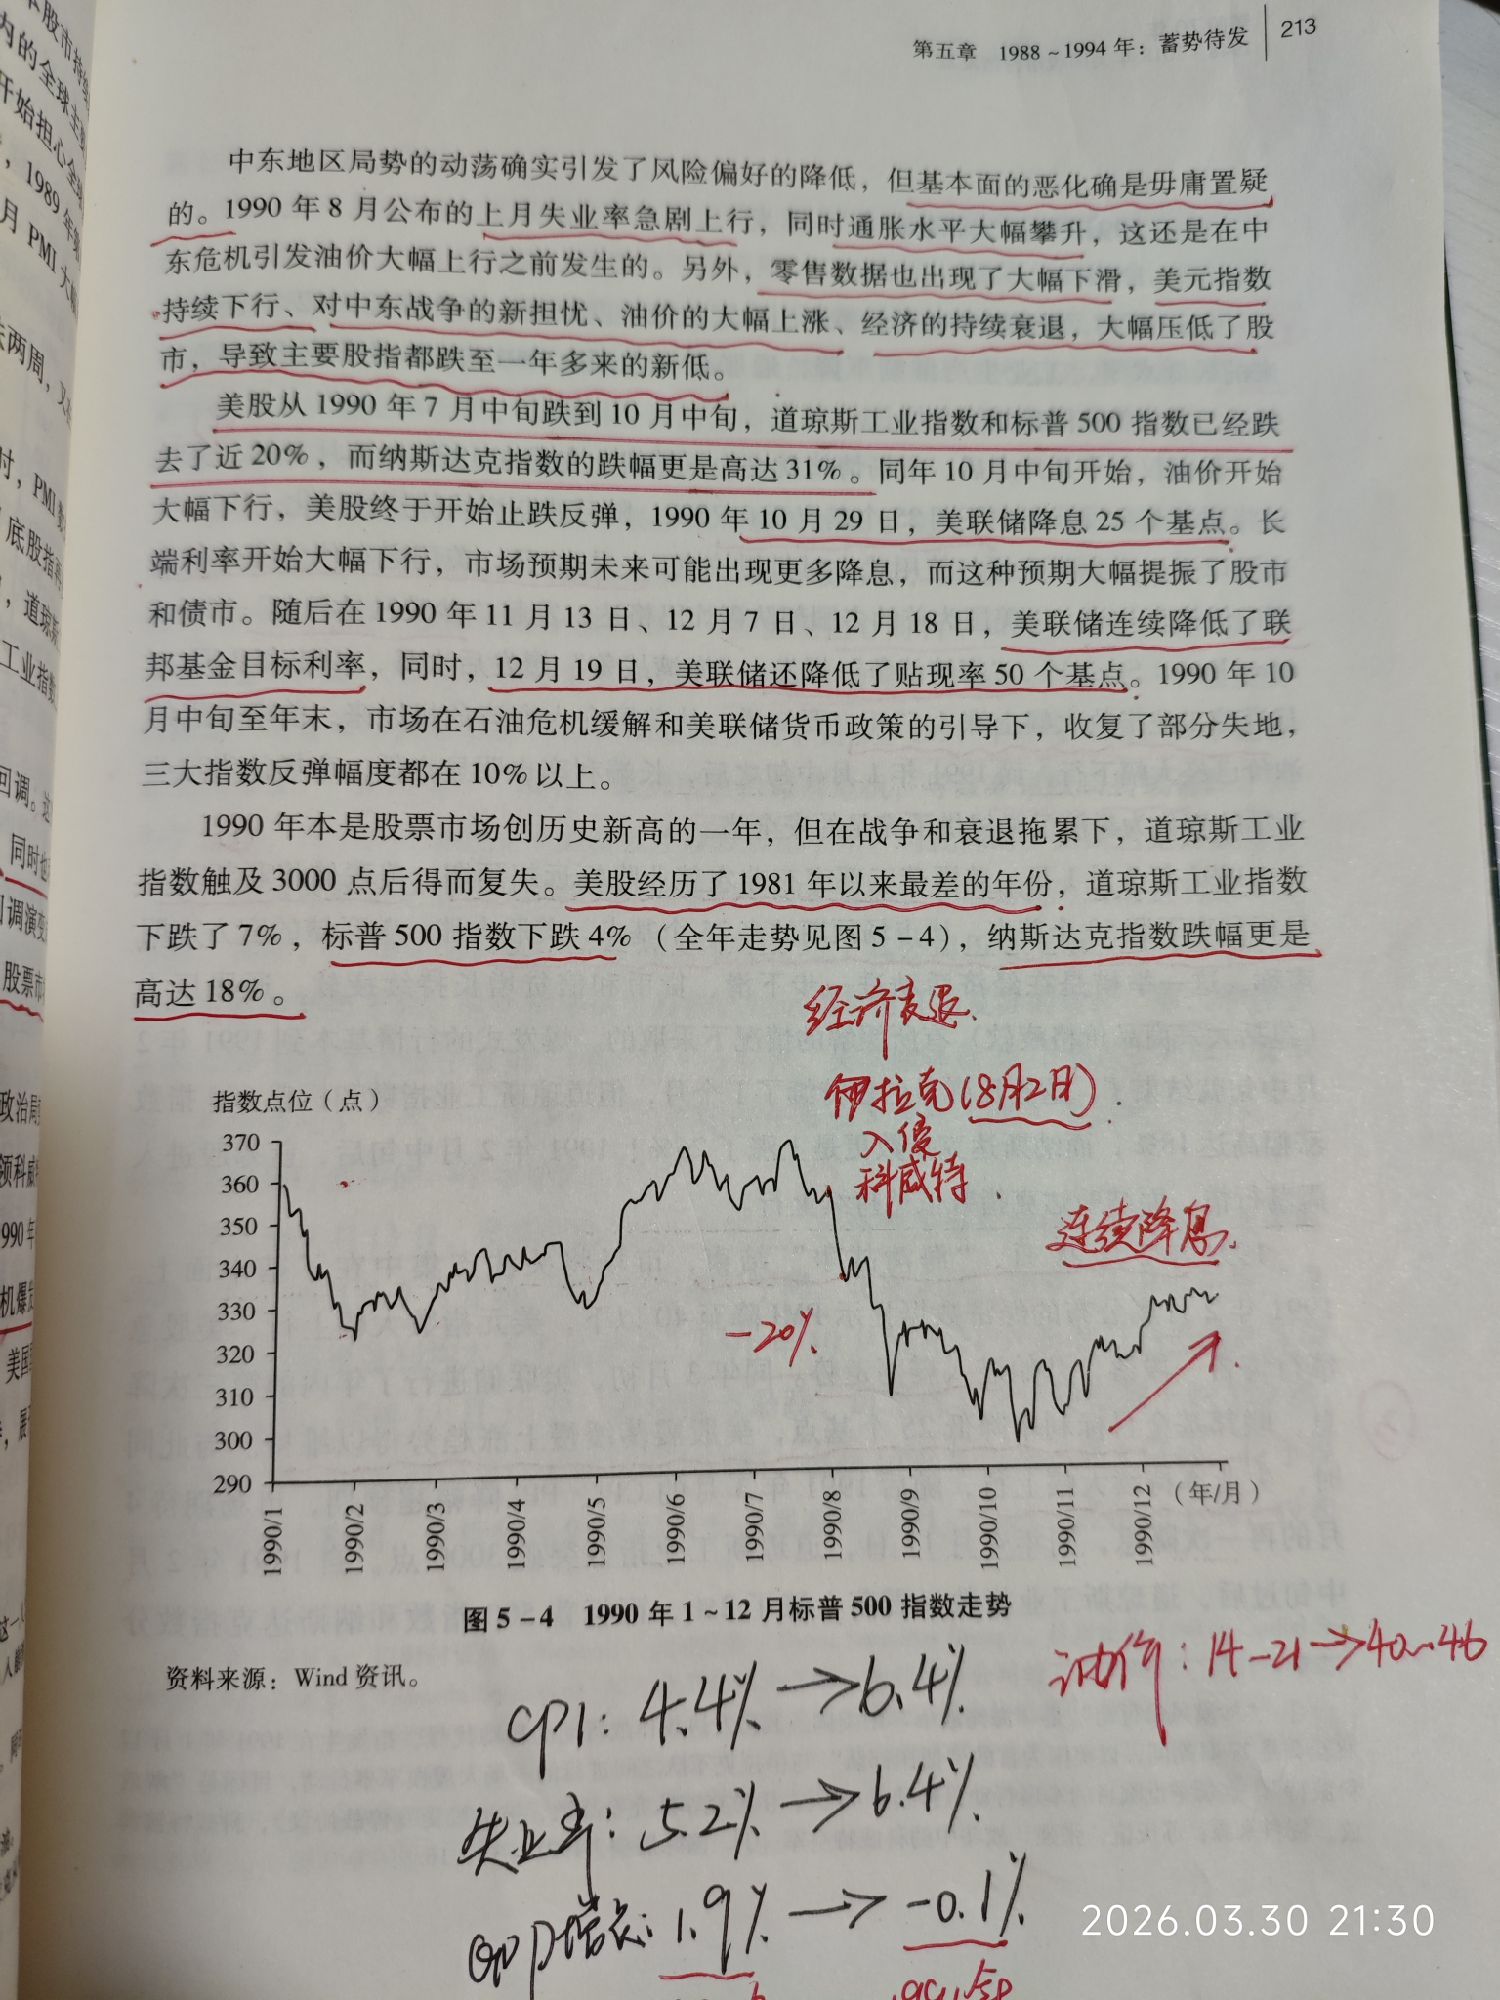 第五章 1988～1994年：蓄势待发 213
中东地区局势的动荡确实引发了风险偏好的降低，但基本面的恶化确是毋庸置疑
的。1990年8月公布的上月失业率急剧上行，同时通胀水平大幅攀升，这还是在中
东危机引发油价大幅上行之前发生的。另外，零售数据也出现了大幅下滑，美元指数
持续下行、对中东战争的新担忧、油价的大幅上涨、经济的持续衰退，大幅压低了股
市，导致主要股指都跌至一年多来的新低。
美股从1990年7月中旬跌到10月中旬，道琼斯工业指数和标普500指数已经跌
去了近20%，而纳斯达克指数的跌幅更是高达31%。同年10月中旬开始，油价开始
大幅下行，美股终于开始止跌反弹，1990年10月29日，美联储降息25个基点。长
端利率开始大幅下行，市场预期未来可能出现更多降息，而这种预期大幅提振了股市
和债市。随后在1990年11月13日、12月7日、12月18日，美联储连续降低了联
邦基金目标利率，同时，12月19日，美联储还降低了贴现率50个基点。1990年10
月中旬至年末，市场在石油危机缓解和美联储货币政策的引导下，收复了部分失地，
三大指数反弹幅度都在10%以上。
1990年本是股票市场创历史新高的一年，但在战争和衰退拖累下，道琼斯工业
指数触及3000点后得而复失。美股经历了1981年以来最差的年份，道琼斯工业指数
下跌了7%，标普500指数下跌4%（全年走势见图5-4），纳斯达克指数跌幅更是
高达18%。
经济衰退.
指数点位（点）
伊拉克(8月2日).
入侵
科威特.
连续降息.
-20%.
370
360
350
340
330
320
310
300
290
1990/1 1990/2 1990/3 1990/4 1990/5 1990/6 1990/7 1990/8 1990/9 1990/10 1990/11 1990/12 （年/月）
图5-4 1990年1~12月标普500指数走势
资料来源：Wind资讯。
油价：14-21→40~46
CPI: 4.4%→6.4%
失业率: 5.2%→6.4%
GDP增长: 1.9%→-0.1%
2026.03.30 21:30